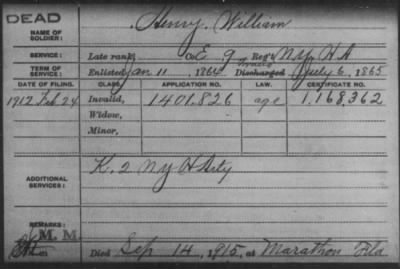 DEAD
NAME OF SOLDIER:
Henry, William
SERVICE:
Late rank, Co. E, 9 Reg't N.Y. H A
TERM OF SERVICE:
Enlisted Jan 11, 1864 Discharged July 6, 1865
DATE OF FILING. CLASS. APPLICATION NO. LAW. CERTIFICATE NO.
1912 Feb 24 Invalid, 1401.826 age 1,168,362
Widow,
Minor,
ADDITIONAL SERVICES:
K. 2 NY H Arty
REMARKS:
M. M.
Died Sep 14, 1915, at Marathon Fla